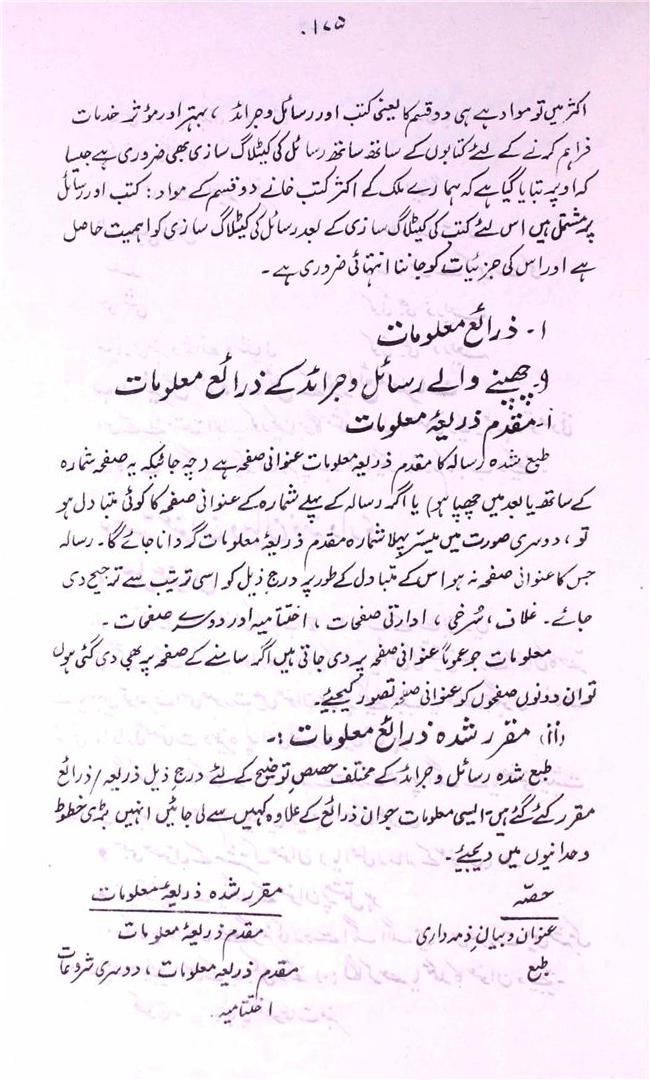 ۱۷۵
اکثر میں تو مواد ہے ہی دو قسم کا یعنی کتب اور رسائل و جرائد ، بہتر اور مؤثر خدمات
فراہم کرنے کے لئے کتابوں کے ساتھ ساتھ رسائل کی کیٹلاگ سازی بھی ضروری ہے جیسا
کہ اوپر بتایا گیا ہے کہ ہمارے ملک کے اکثر کتب خانے دو قسم کے مواد : کتب اور رسائل
پر مشتمل ہیں اس لئے کتب کی کیٹلاگ سازی کے بعد رسائل کی کیٹلاگ سازی کو اہمیت حاصل
ہے اور اس کی جزئیات کو جاننا انتہائی ضروری ہے ۔
۱۔ ذرائع معلومات
و۔ چھپنے والے رسائل و جرائد کے ذرائع معلومات
i۔ مقدم ذریعۂ معلومات
طبع شدہ رسالہ کا مقدم ذریعۂ معلومات عنوانی صفحہ ہے (چہ جائیکہ یہ صفحہ شمارہ
کے ساتھ یا بعد میں چھپا ہو) یا اگر رسالہ کے پہلے شمارہ کے عنوانی صفحہ کا کوئی متبادل ہو
تو ، دوسری صورت میں میسّر پہلا شمارہ مقدم ذریعۂ معلومات گردانا جائے گا۔ رسالہ
جس کا عنوانی صفحہ نہ ہو اس کے متبادل کے طور پر درج ذیل کو اسی ترتیب سے ترجیح دی
جائے ۔ غلاف ، سُرخی ، ادارتی صفحات ، اختتامیہ اور دوسرے صفحات ۔
معلومات جو عموماً عنوانی صفحہ پر دی جاتی ہیں اگر سامنے کے صفحہ پر بھی دی گئی ہوں
تو ان دونوں صفحوں کو عنوانی صفحہ تصور کیجئے۔
(ii) مقرر شدہ ذرائع معلومات :۔
طبع شدہ رسائل و جرائد کے مختلف حصص توضیح کے لئے درج ذیل ذریعہ/ذرائع
مقرر کئے گئے ہیں۔ ایسی معلومات جو ان ذرائع کے علاوہ کہیں سے لی جائیں انہیں بڑی خطوط
وحدانیوں میں دیجئے۔
حصّہ مقرر شدہ ذریعۂ معلومات
عنوان و بیان ذمہ داری مقدم ذریعۂ معلومات
طبع مقدم ذریعۂ معلومات ، دوسری شروعات
اختتامیہ